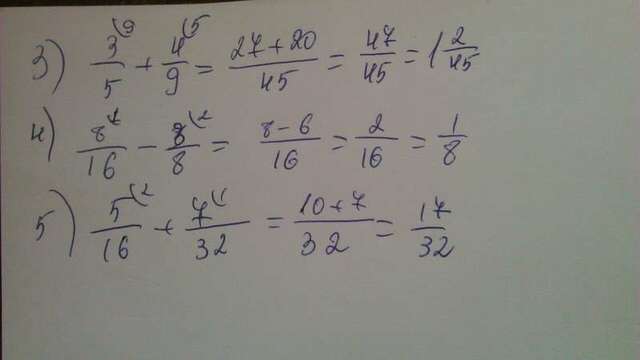 3) 3⁽⁹/5 + 4⁽⁵/9 = 27+20/45 = 47/45 = 1 2/45
4) 8⁽¹/16 − 3⁽²/8 = 8−6/16 = 2/16 = 1/8
5) 5⁽²/16 + 7⁽¹/32 = 10+7/32 = 17/32